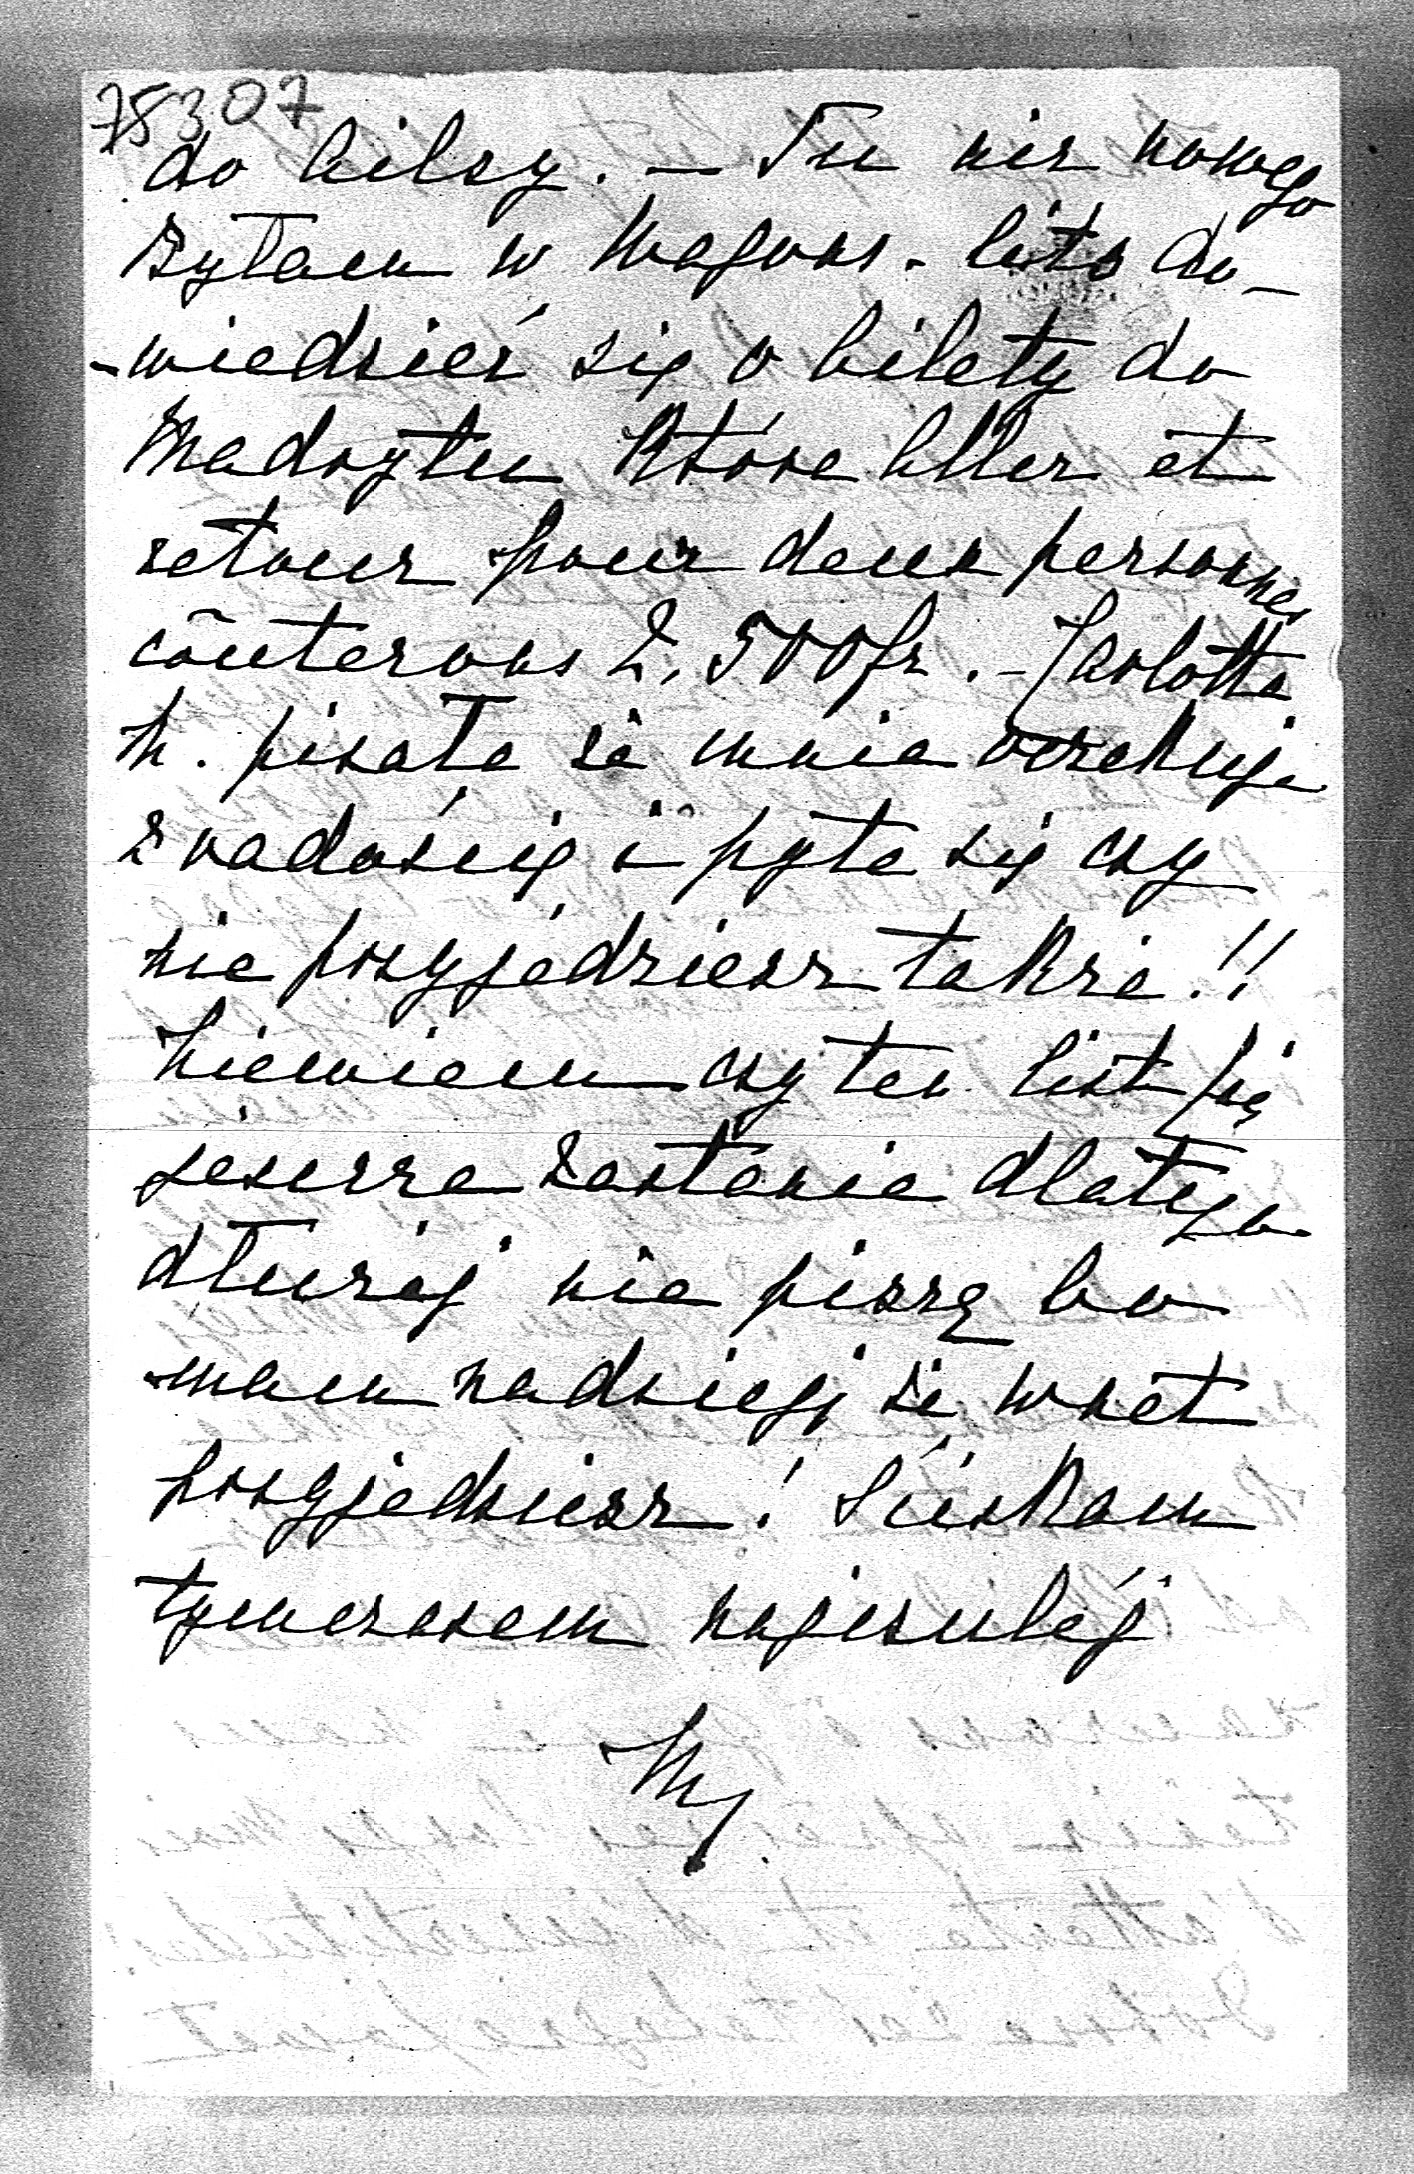 78307
do bilsy. – Tu nic nowego
Byłam w Wagons-lits do-
-wiedzieć się o bilety do
Madrytu które Aller et
retour pour deux personnes
coûterons 2,500 fr. – Karlotta
h. pisała że mnie oczekuje
z radością i pyta się czy
nie przyjedziesz także!!
Niewiem czy ten list Cię
jeszcze zastanie dlatego
dłużej nie piszę bo
mam nadzieję że wnet
przyjedziesz! Ściskam
tymczasem najczulej